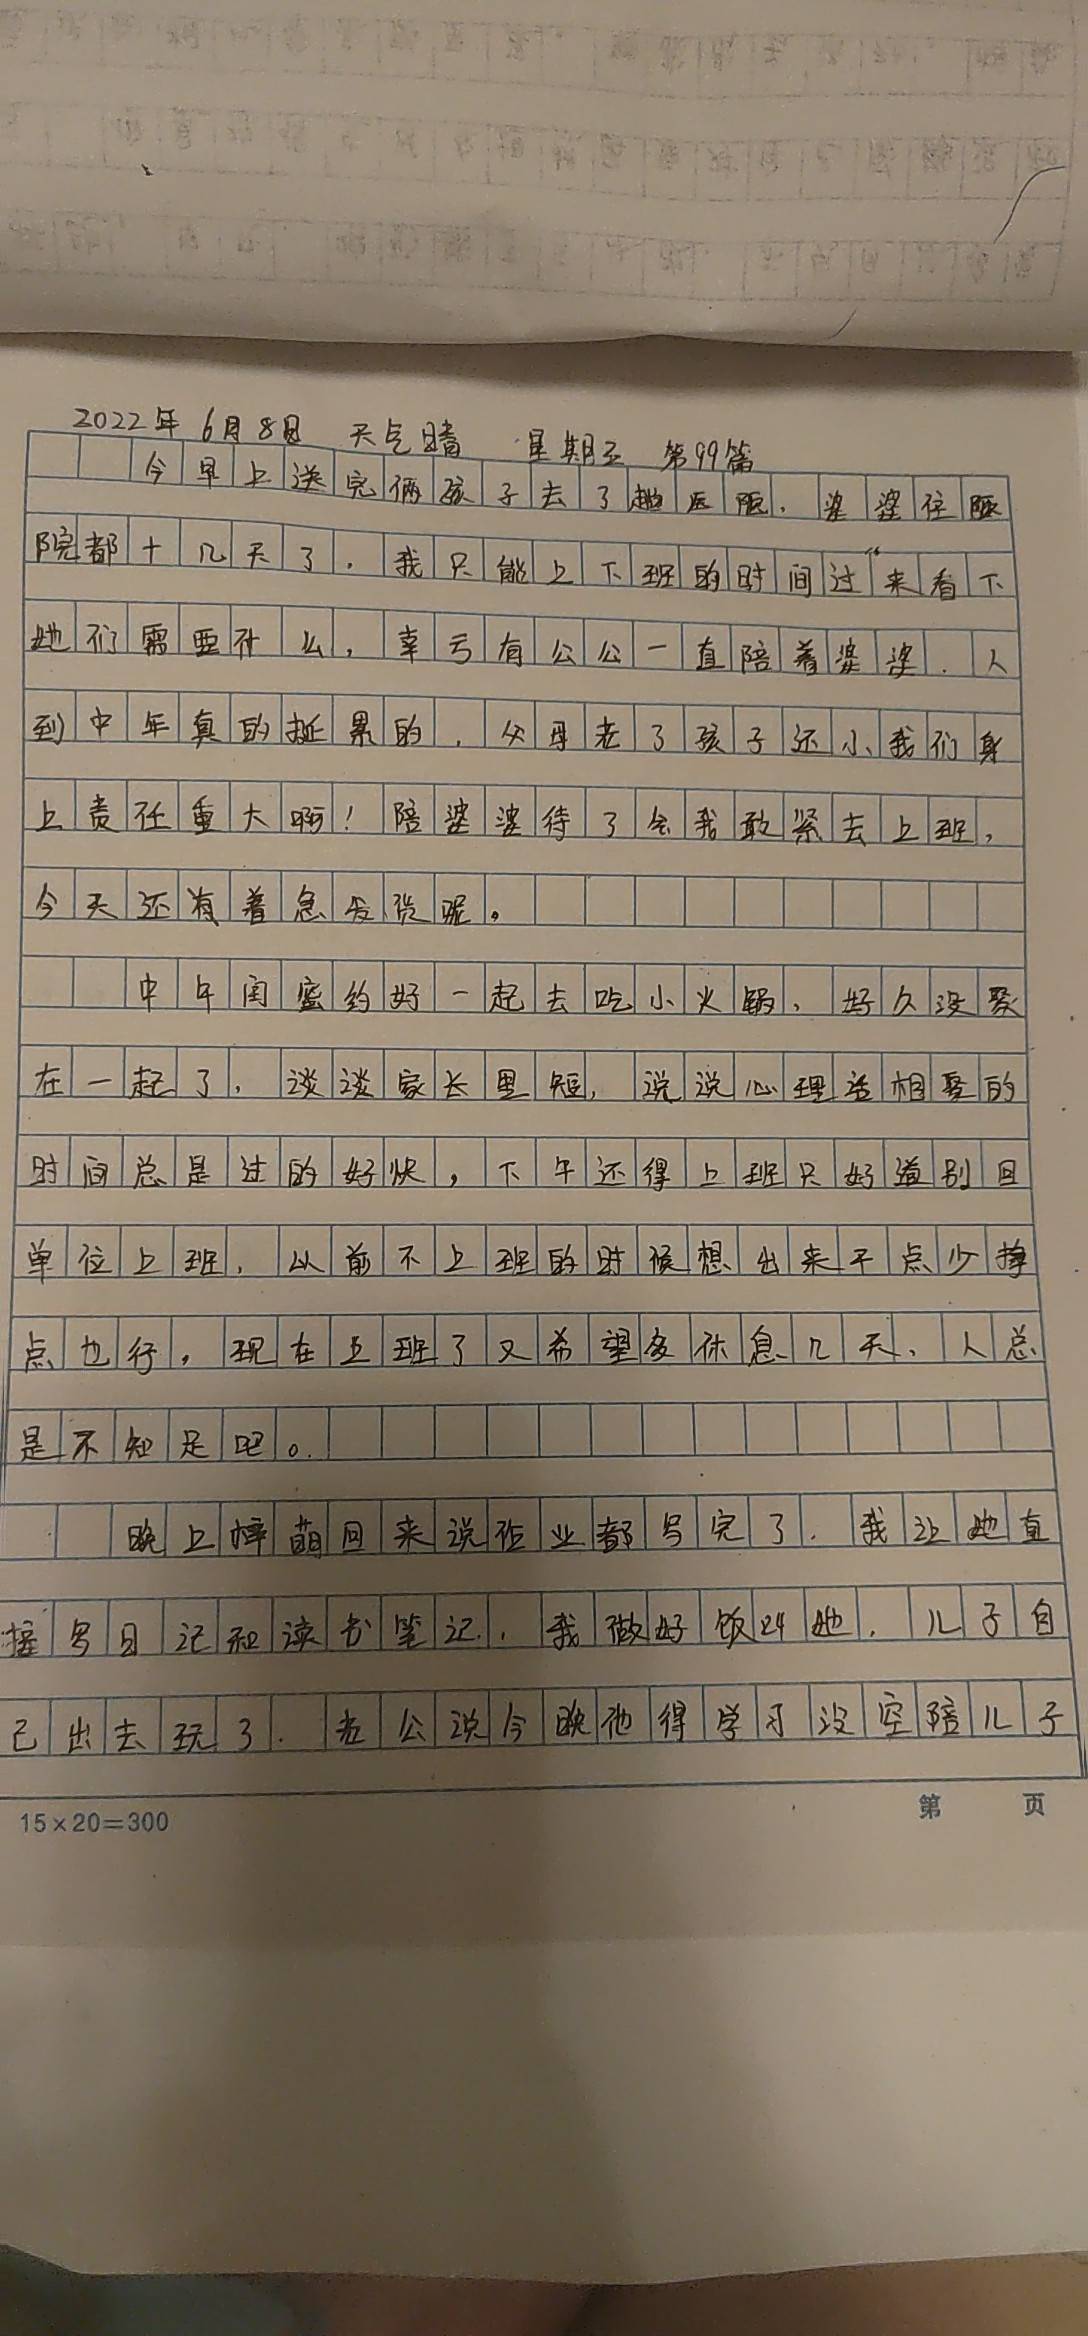 2022年 6月8日 天气晴 星期五 第99篇
今早上送完俩孩子去了趟医院，婆婆住医
院都十几天了，我只能上下班的时间过来看下
她们需要什么，幸亏有公公一直陪着婆婆．人
到中年真的挺累的，父母老了孩子还小我们身
上责任重大啊！陪婆婆待了会我敢紧去上班，
今天还有着急发货呢。
中午闺蜜约好一起去吃小火锅，好久没聚
在一起了，谈谈家长里短，说说心理话相聚的
时间总是过的好快，下午还得上班只好道别回
单位上班，以前不上班的时候想出来干点少挣
点也行，现在上班了又希望多休息几天、人总
是不知足吧。
晚上梓萌回来说作业都写完了．我让她直
接写日记和读书笔记．，我做好饭叫她，儿子自
己出去玩了．老公说今晚他得学习没空陪儿子
15×20=300
第 页